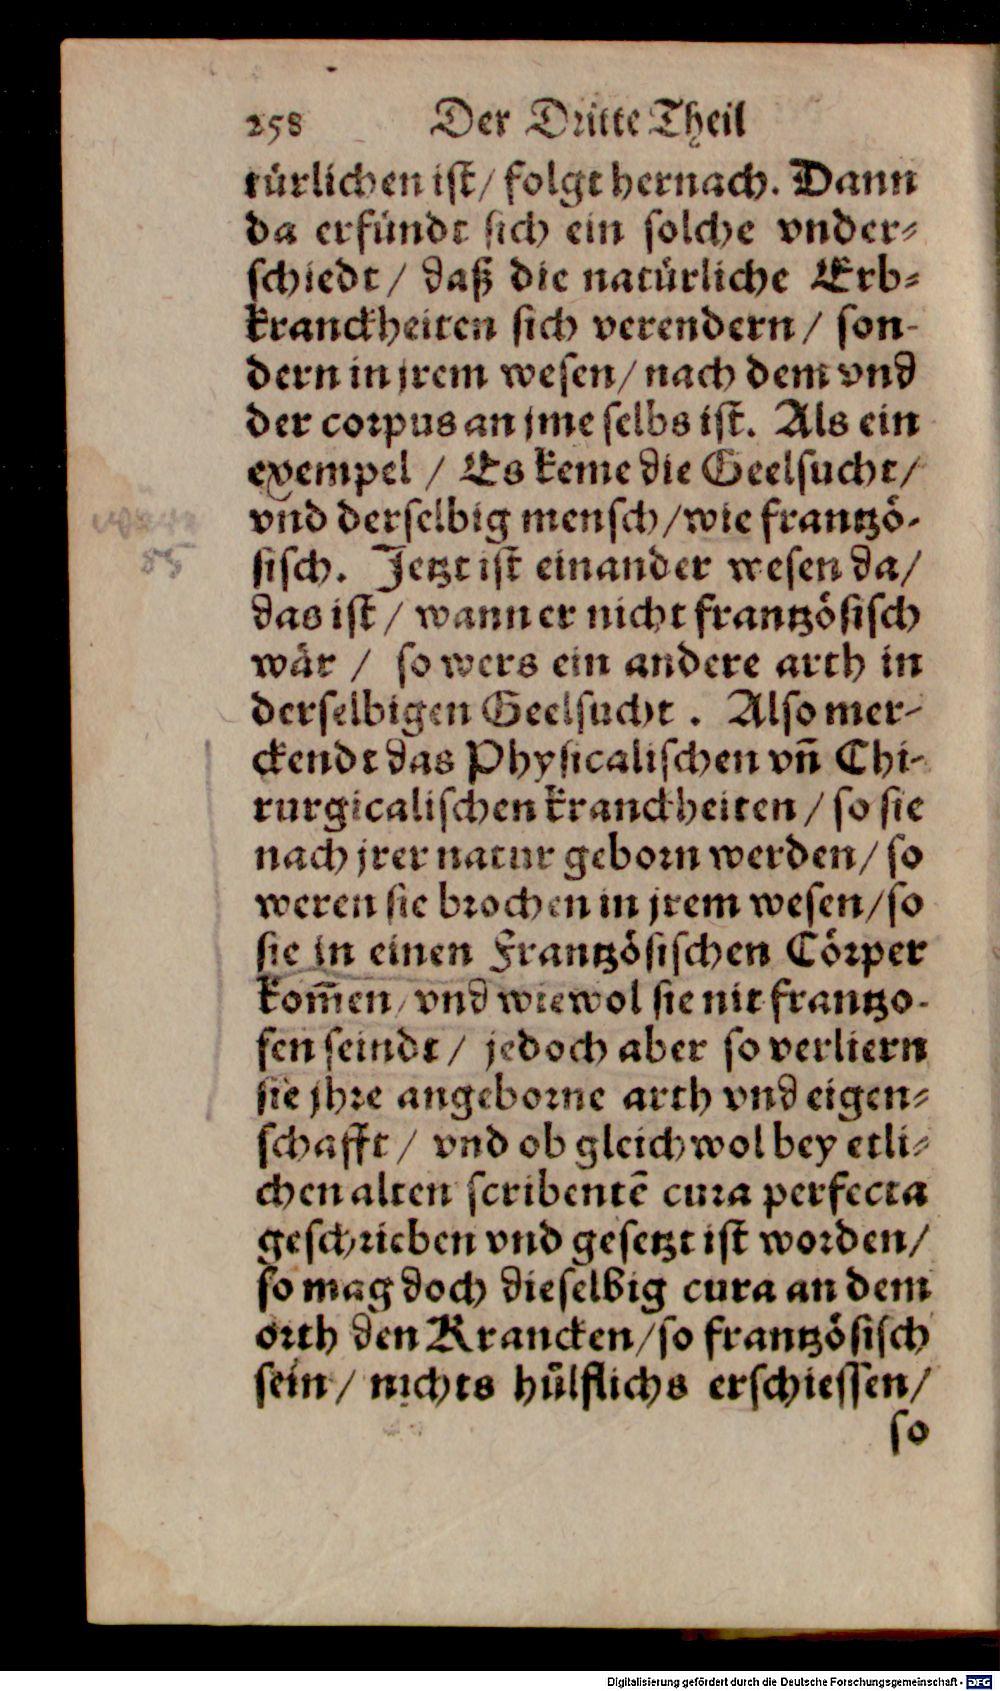 258 Der Dritte Theil
türlichen ist / folgt hernach. Dann
da erfündt sich ein solche vnder-
schiedt / daß die natürliche Erb-
kranckheiten sich verendern / son-
dern in jrem wesen / nach dem vnd
der corpus an jme selbs ist. Als ein
exempel / Es keme die Geelsucht /
vnd derselbig mensch / wie frantzö-
sisch. Jetzt ist ein ander wesen da /
das ist / wann er nicht frantzösisch
wär / so wers ein andere arth in
derselbigen Geelsucht. Also mer-
ckendt das Physicalischen vñ Chi-
rurgicalischen kranckheiten / so sie
nach jrer natur geborn werden / so
weren sie brochen in jrem wesen / so
sie in einen Frantzösischen Cörper
kom̃en / vnd wiewol sie nit frantzo-
sen seindt / jedoch aber so verliern
sie jhre angeborne arth vnd eigen-
schafft / vnd ob gleichwol bey etli-
chen alten scribentẽ cura perfecta
geschrieben vnd gesetzt ist worden /
so mag doch dieselbig cura an dem
orth den Krancken / so frantzösisch
sein / nichts hülflichs erschiessen /
so
55
Digitalisierung gefördert durch die Deutsche Forschungsgemeinschaft - DFG